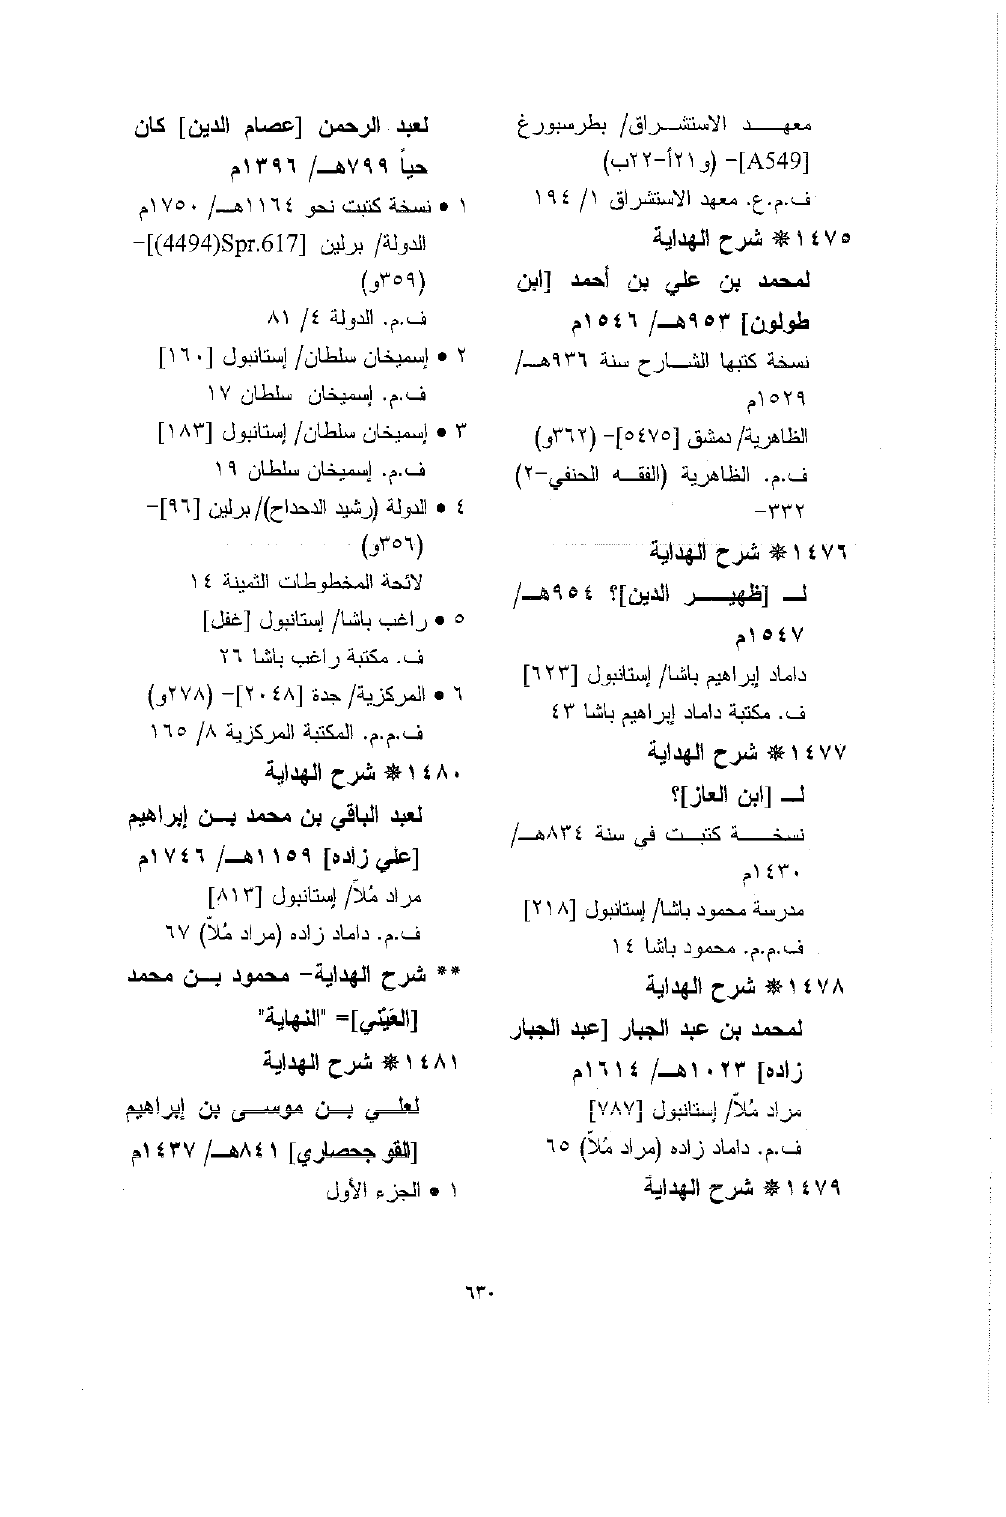 معهد الاستشراق/ بطرسبورغ
[A549]- (و٢١أ-٢٢ب)
ف.م.ع. معهد الاستشراق ١/ ١٩٤
١٤٧٥* شرح الهداية
لمحمد بن علي بن أحمد [ابن
طولون] ٩٥٣هـ/ ١٥٤٦م
نسخة كتبها الشارح سنة ٩٣٦هـ/
١٥٢٩م
الظاهرية/ دمشق [٥٤٧٥]- (٣٦٢و)
ف.م. الظاهرية (الفقه الحنفي-٢)
٣٣٢-
١٤٧٦* شرح الهداية
لـ [ظهير الدين]؟ ٩٥٤هـ/
١٥٤٧م
داماد إبراهيم باشا/ إستانبول [٦٢٣]
ف. مكتبة داماد إبراهيم باشا ٤٣
١٤٧٧* شرح الهداية
لـ [ابن العاز]؟
نسخة كتبت في سنة ٨٣٤هـ/
١٤٣٠م
مدرسة محمود باشا/ إستانبول [٢١٨]
ف.م.م. محمود باشا ١٤
١٤٧٨* شرح الهداية
لمحمد بن عبد الجبار [عبد الجبار
زاده] ١٠٢٣هـ/ ١٦١٤م
مراد مُلاّ/ إستانبول [٧٨٧]
ف.م. داماد زاده (مراد مُلاّ) ٦٥
١٤٧٩* شرح الهداية
لعبد الرحمن [عصام الدين] كان
حياً ٧٩٩هـ/ ١٣٩٦م
١ • نسخة كتبت نحو ١١٦٤هـ/ ١٧٥٠م
الدولة/ برلين [Spr.617(4494)]-
(٣٥٩و)
ف.م. الدولة ٤/ ٨١
٢ • إسميخان سلطان/ إستانبول [١٦٠]
ف.م. إسميخان سلطان ١٧
٣ • إسميخان سلطان/ إستانبول [١٨٣]
ف.م. إسميخان سلطان ١٩
٤ • الدولة (رشيد الدحداح)/ برلين [٩٦]-
(٣٥٦و)
لائحة المخطوطات الثمينة ١٤
٥ • راغب باشا/ إستانبول [غفل]
ف. مكتبة راغب باشا ٢٦
٦ • المركزية/ جدة [٢٠٤٨]- (٢٧٨و)
ف.م.م. المكتبة المركزية ٨/ ١٦٥
١٤٨٠* شرح الهداية
لعبد الباقي بن محمد بن إبراهيم
[علي زاده] ١١٥٩هـ/ ١٧٤٦م
مراد مُلاّ/ إستانبول [٨١٣]
ف.م. داماد زاده (مراد مُلاّ) ٦٧
** شرح الهداية- محمود بن محمد
[العَيْني]= "النهاية"
١٤٨١* شرح الهداية
لعلي بن موسى بن إبراهيم
[القوجحصاري] ٨٤١هـ/ ١٤٣٧م
١ • الجزء الأول
٦٣٠